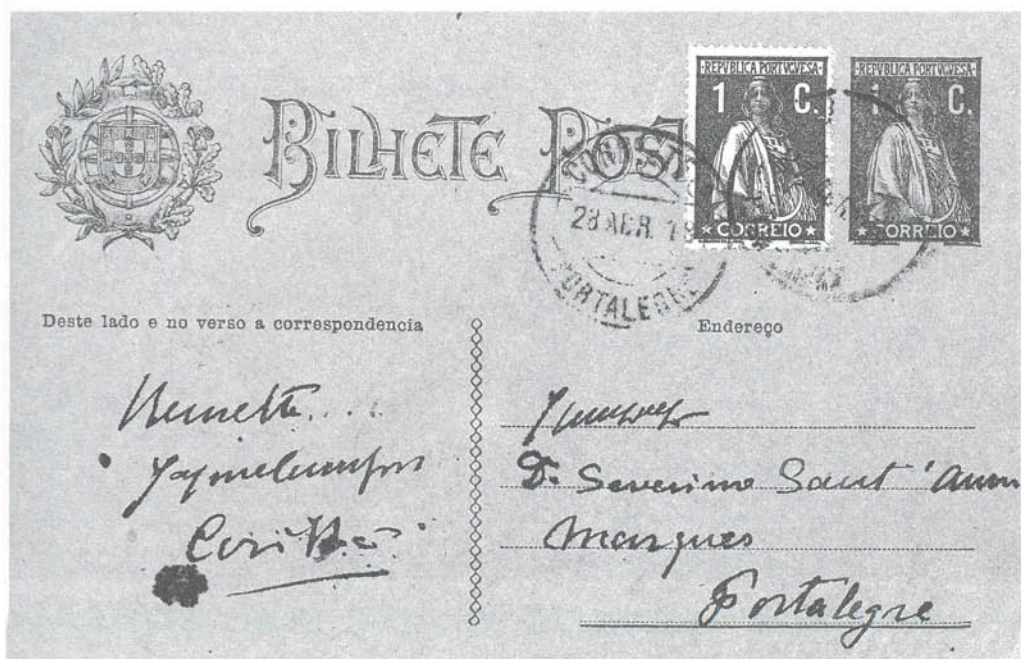 BILHETE POST
REPVBLICA PORTVGVESA
1 C.
CORREIO
REPVBLICA PORTVGVESA
1 C.
CORREIO
28 ABR. 18
PORTALEGRE
Deste lado e no verso a correspondencia
Endereço
Remette
Dr. Severino Sant'Anna
Marques
Portalegre